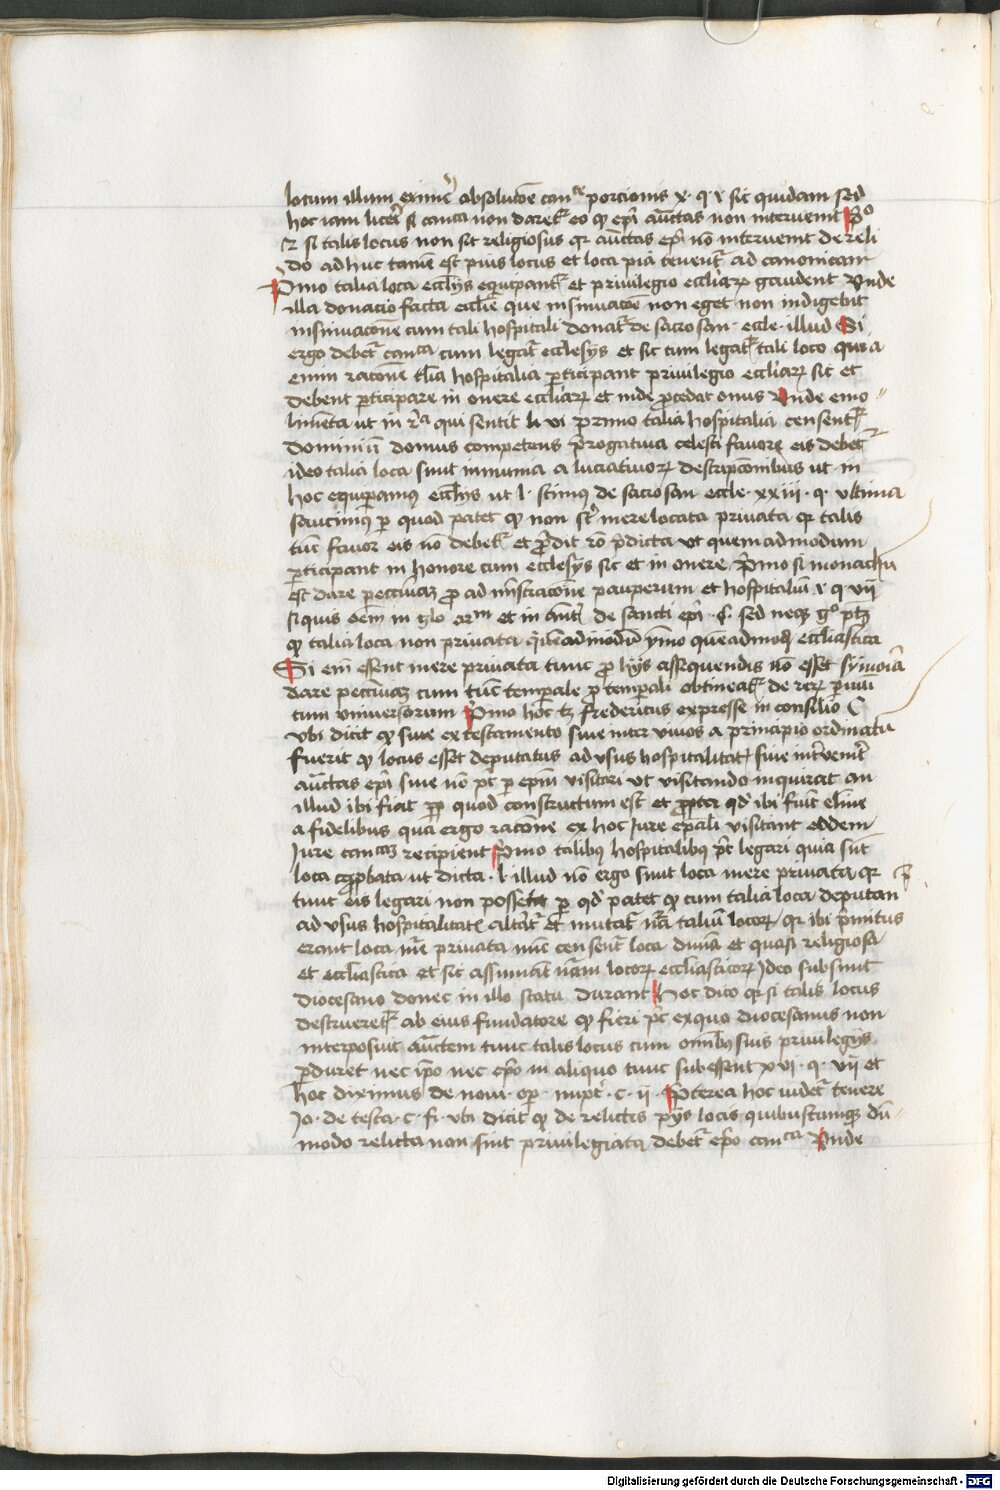 locum illum eximer absolucõe cance porcionis x. q. i sic quidam sed
hoc iam licet si canca non daret eo qp epi auctas non interuenit
2 si talis locus non sit religiosus qr auctas epi nõ interuenit de reli
do ad huc tamen est pius locus et loca pia tenent ad canonicam
Pmo talia loca ecclijs equipant et priuilegio eccliarz gaudent Unde
illa donacio facta ecclie que insinuacõe non eget non indigebit
insinuacione cum tali hospitali donat de sacrosan. eccle. illud Si
ergo debet canca cum legat ecclesijs et sic cum legat tali loco quia
enim racõne talia hospitalia pticipant priuilegio eccliarz sic et
debent pticipare in onere eccliarz et inde pcedat onus Unde emo
limenta ut in ra qui sentit li vi primo talia hospitalia censent
dominii domus competens progatiua celesti fauore eis debet
ideo talia loca sunt inmunia a lucratiuorz descripcõnibus ut in
hoc equipamus ecclijs ut l. scimus de sacrosan eccle. xxiii. q. vltima
sancimus p quod patet qp non sunt mere locata priuata qr talis
tunc fauor eis nõ debet et pdit ro pdicta ut quemadmodum
pticipant in honore cum ecclesijs sic et in onere Pmo si monacha
est dare pecuniaz pro ad ministracõne pauperum et hospitaliũ i q vii
siquis oem in glo et in aut de sancti epi. §. sed neqz go ptz
qp talia loca non priuata ymo quemadmodum eccliastica
Si enim essent mere priuata tunc pro hijs assequendis nõ esset symonia
dare pecuniaz cum tunc temporale p temporali obtineat de rerz pmu
tum vniuersorum Pmo hoc tz fredericus expresse in consilio
vbi dicit qp siue ex testamento siue inter viuos a principio ordinatu
fuerit qp locus esset deputatus ad vsus hospitalitatz siue interuenit
auctas epi siue nõ pt p epm visitari vt visitando inquirat an
illud ibi fiat pp quod constructum est et propter qd ibi fiunt elime
a fidelibus qua ergo racõne ex hoc Jure epali visitant eodem
Jure cancam recipient Pmo talibus hospitalibus pt legari quia sunt
loca approbata ut dicta. l. illud nõ ergo sunt loca mere priuata qr
tunc eis legari non posset p qd patet qp cum talia loca deputan
ad vsus hospitalitatis alterat et mutat natura taliũ locorz qr ibi primitus
erant loca mere priuata nunc censent loca diuina et quasi religiosa
et eccliastica et sic assumunt naturam locorz eccliasticorz Ideo subsunt
diocesano donec in illo statu durant Hoc dico qr si talis locus
destrueret ab eius fundatore qp fieri pt exquo diocesanus non
interposuit auctem tunc talis locus cum omnibus suis priuilegijs
pduret nec ipo nec epo in aliquo tunc subessent xvi. q. vii et
hoc diximus de noui. op. nupt. c. ii. Pterea hoc videt tenere
Jo. de testa. c. fi. vbi dicit qp de relictis pijs locis quibuscumqz dũ
modo relicta non sint priuilegiata debet epo canca Unde
Digitalisierung gefördert durch die Deutsche Forschungsgemeinschaft - DFG